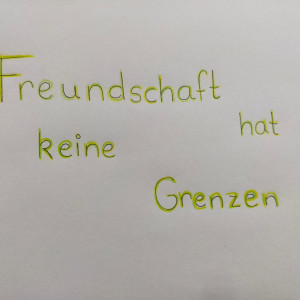 Freundschaft
hat
keine
Grenzen